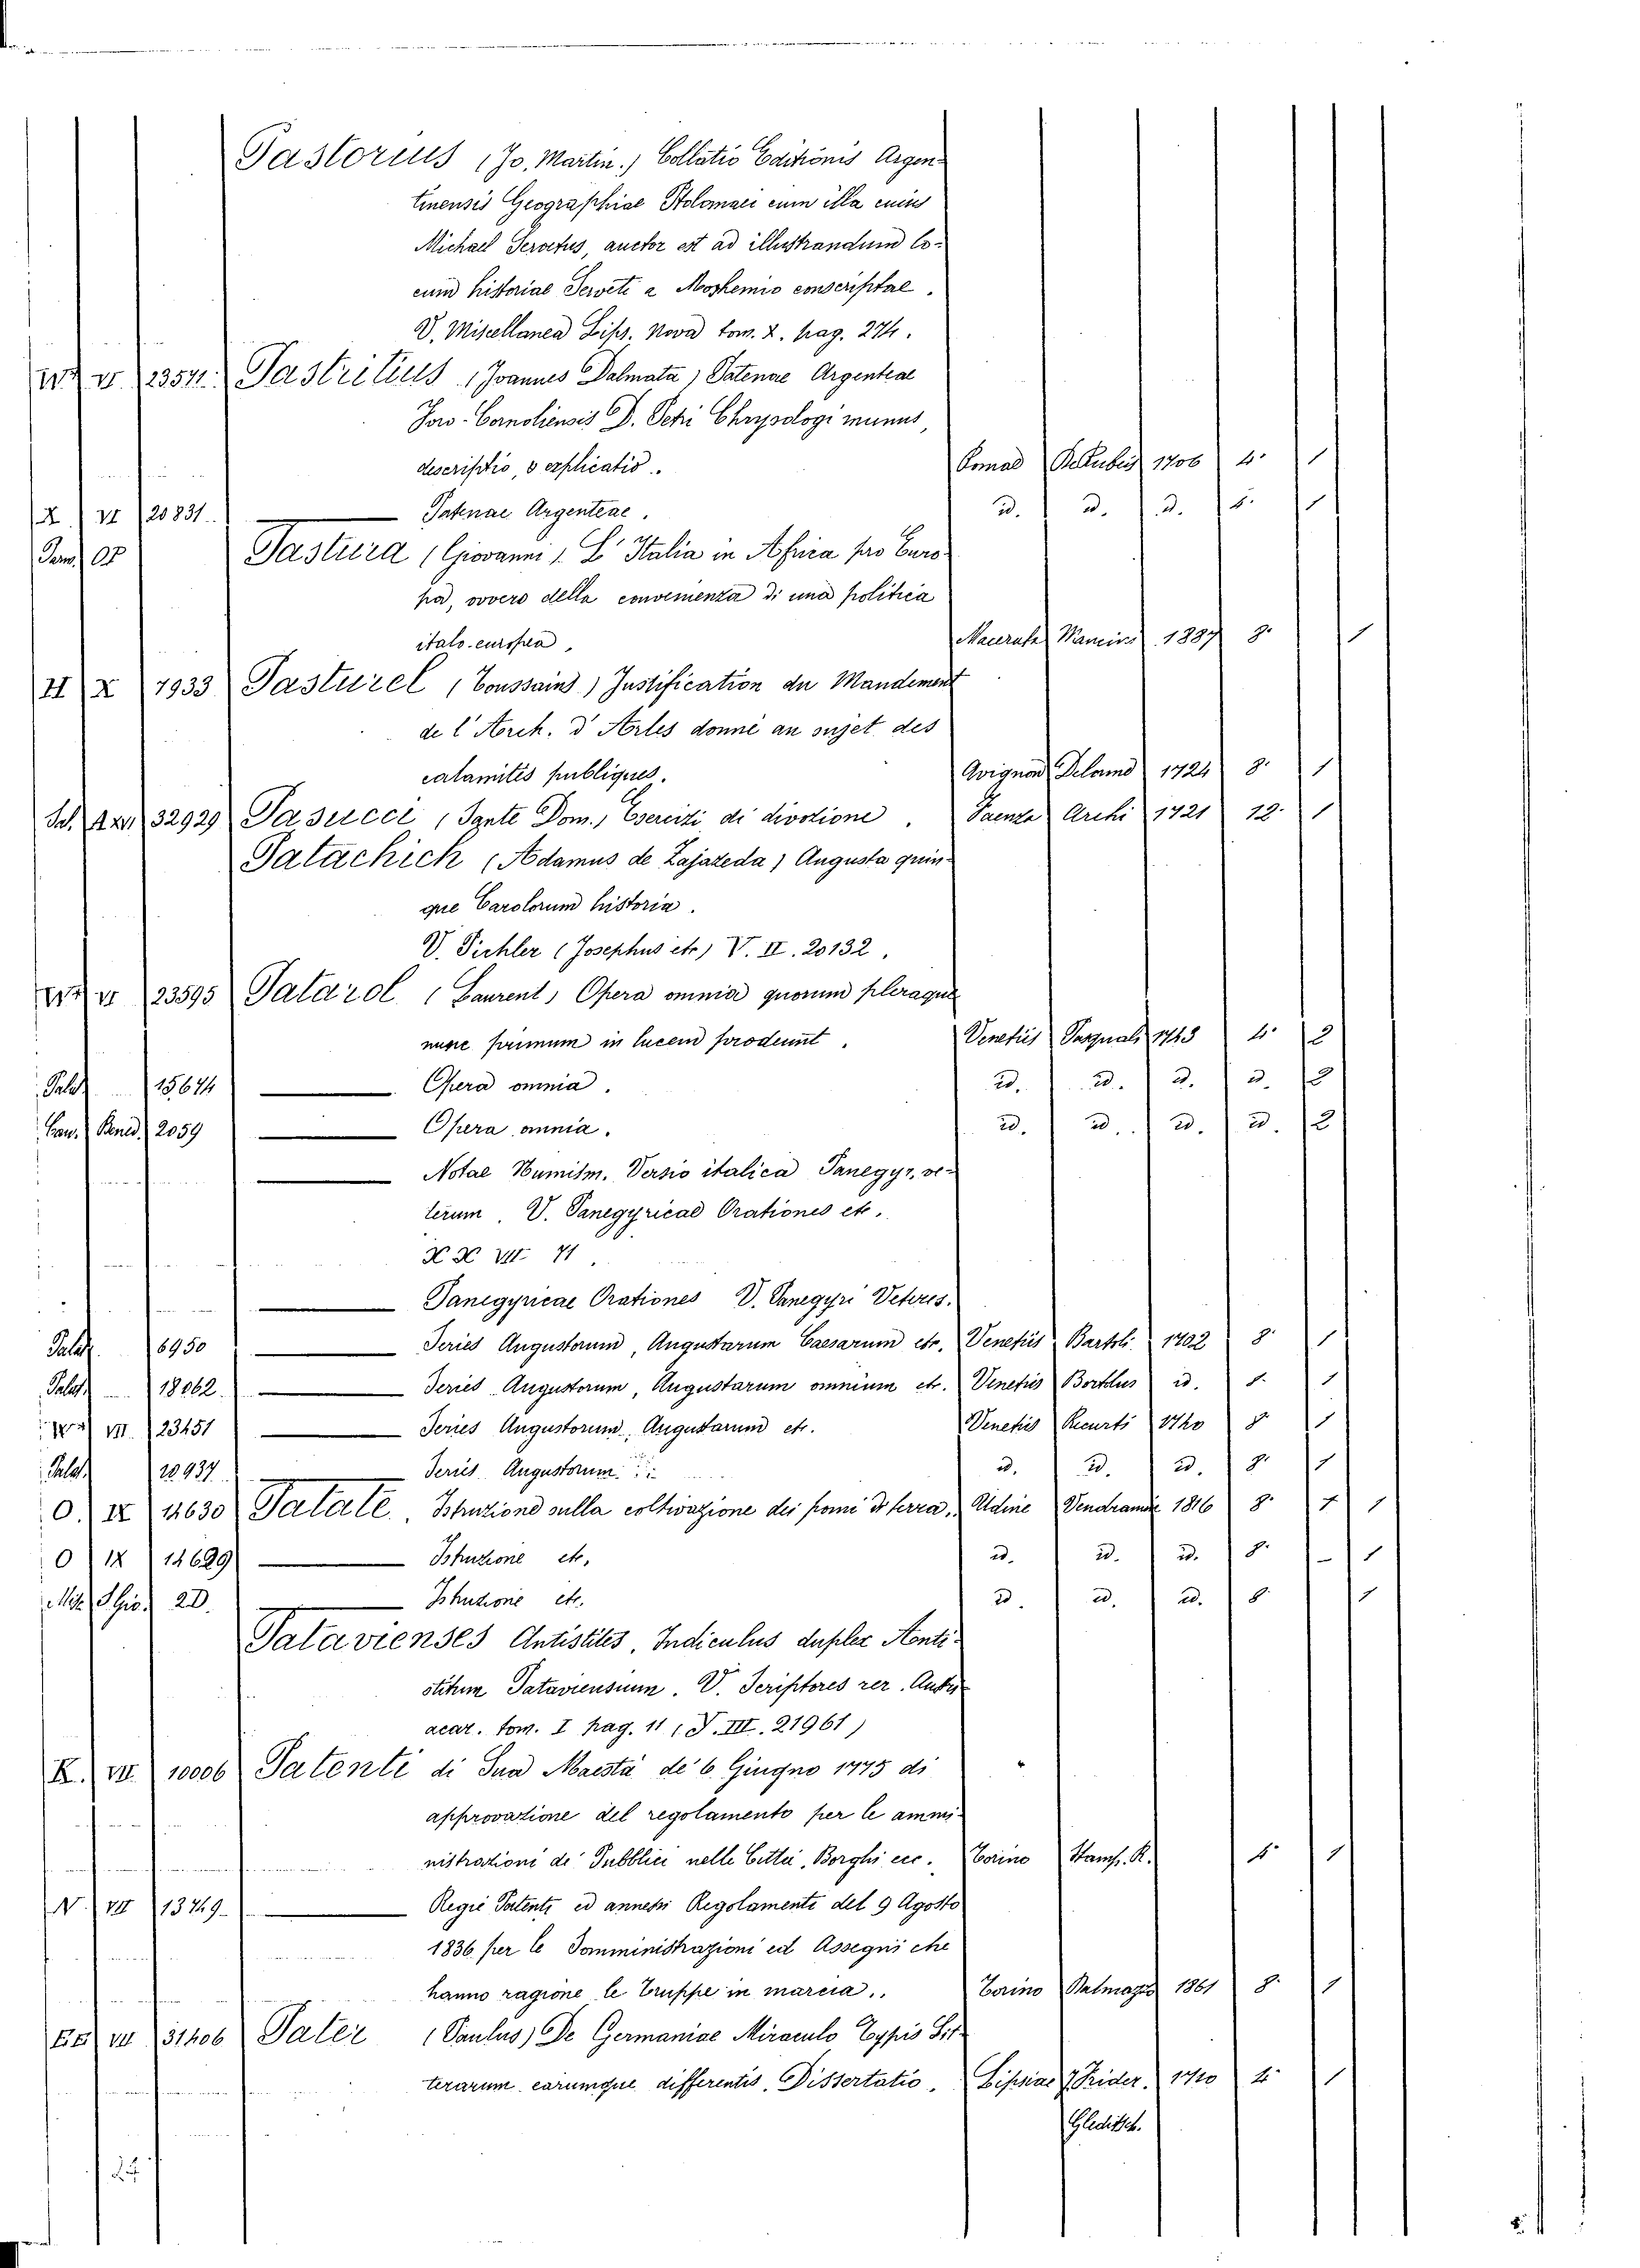 Pastorius (Jo. Martin.) Collatio Editionis Argen-
tinensis Geographiae Ptolomaei cum illa cuius
Michael Servetus, auctor est ad illustrandum lo-
cum historiae Serveti a Moshemio conscriptae.
V. Miscellanea Lips. Nova tom. X. pag. 274.
VI 23571. Pastritius (Joannes Dalmata) Patenae Argenteae
Foro-Corneliensis D. Petri Chrysologi munus,
descriptio, & explicatio. Romae De Rubeis 1706 4. 1
X VI 20831. — Patenae Argenteae. id. id. id. 4. 1
Pastura (Giovanni) L'Italia in Africa pro Euro-
pa, ovvero della convenienza di una politica
italo-europea. Macerata Mancini 1887 8. 1
II X 7933 Pasturel (Toussains) Justification du Mandement
de l'Arch. d'Arles donné au sujet des
calamités publiques. Avignon Delorme 1724 8. 1
32929 Pasucci (Sante Dom.) Esercizi di divotione. Faenza Archi 1721 12. 1
Patachich (Adamus de Zajazeda) Augusta quin-
que Carolorum historia.
V. Pichler (Josephus etc) V. II. 20132.
VI 23595 Patarol (Laurent) Opera omnia quorum pleraque
nunc primum in lucem prodeunt. Venetiis Pasquali 1743 4. 2
Palat. 15674 — Opera omnia. id. id. id. id. 2
Can. Bened. 2059 — Opera omnia. id. id. id. id. 2
— Notae Numism. Versio italica Panegyr. ve-
terum. V. Panegyricae Orationes etc.
X X VII 71.
— Panegyricae Orationes V. Panegyri Veteres.
Palat. 6950 — Series Augustorum, Augustarum Caesarum etc. Venetiis Bartoli 1702 8. 1
Palat. 18062. — Series Augustorum, Augustarum omnium etc. Venetiis Bortolus id. 8. 1
VII. 23451 — Series Augustorum, Augustarum etc. Venetiis Recurti 1740 8. 1
Palat. 20937 — Series Augustorum id. id. id. 8. 1
O. IX 14630 Patate. Istruzione sulla coltivazione dei pomi di terra. Udine Vendrame 1816 8. 1
O IX 14629 — Istruzione etc. id. id. id. 8. 1
S. Gio. 20. — Istruzione etc. id. id. id. 8. 1
Patavienses Antistites. Indiculus duplex Anti-
stitum Pataviensium. V. Scriptores rer. Austri-
acar. tom. I pag. 11 (T. III. 21961)
K. VII. 10006 Patenti di Sua Maestà de' 6. Giugno 1775 di
approvazione del regolamento per le ammi-
nistrazioni de' Pubblici nelle Città, Borghi ecc. Torino Stamp. R. 4. 1
N. VII 13749. — Regie Patenti ed annessi Regolamenti del 9 Agosto
1836 per le Somministrazioni ed Assegni che
hanno ragione le Truppe in marcia. Torino Dalmazzo 1861 8. 1
VII 31406 Pater (Paulus) De Germaniae Miraculo Typis Lit-
terarum earumque differentis. Dissertatio. Lipsiae F. Frider. 1710 4. 1
Gleditsch.